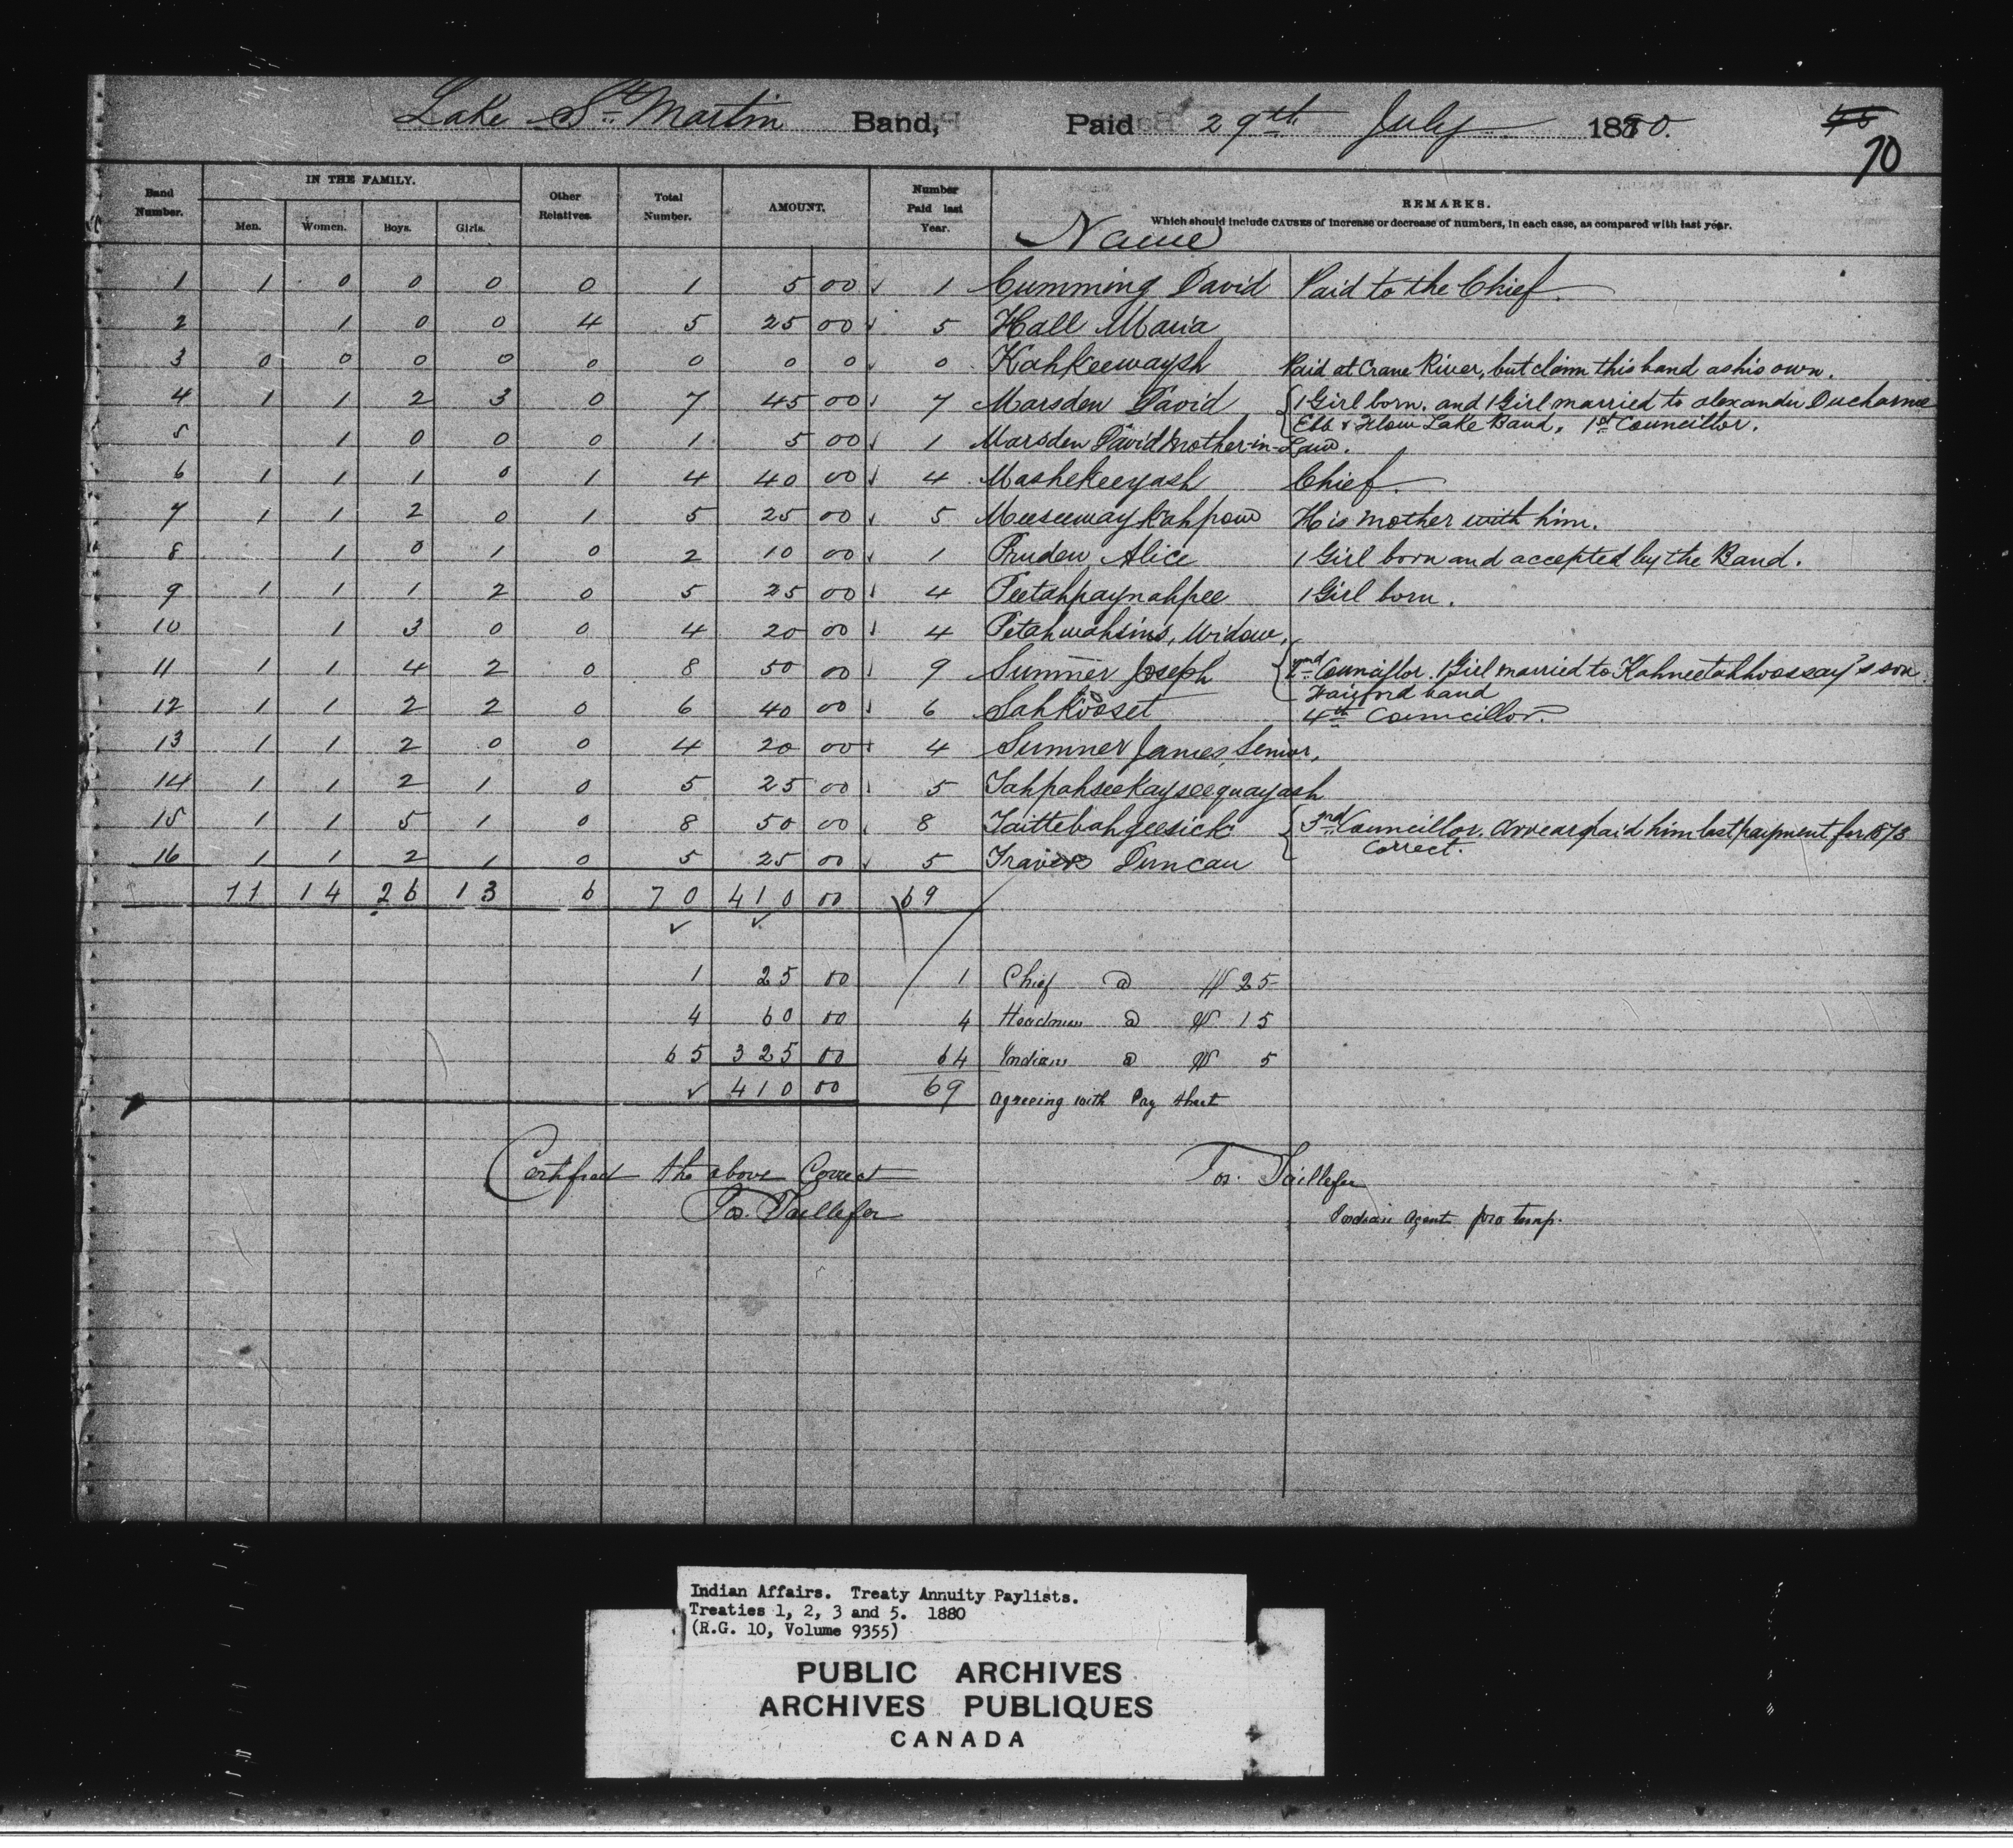 Lake St. Martin Band, Paid 29th July 1880.
46
70
Band Number. IN THE FAMILY. Men. Women. Boys. Girls. Other Relatives. Total Number. AMOUNT. Number Paid last Year. Name REMARKS.
Which should include CAUSES of increase or decrease of numbers, in each case, as compared with last year.
1 1 0 0 0 0 1 5 00 1 Cumming David Paid to the Chief.
2 1 0 0 4 5 25 00 5 Hall Maria
3 0 0 0 0 0 0 0 0 0 Kahkeewaysh Paid at Crane River, but claim this band as his own.
4 1 1 2 3 0 7 45 00 7 Marsden David { 1 Girl born. and 1 Girl married to alexander Ducharme
Ebb & Flow Lake Band, 1st Councillor.
5 1 0 0 0 1 5 00 1 Marsden David Mother-in-Law.
6 1 1 1 0 1 4 40 00 4 Mashekeeyash Chief.
7 1 1 2 0 1 5 25 00 5 Meeseewaykahpow His mother with him.
8 1 0 1 0 2 10 00 1 Pruden, Alice 1 Girl born and accepted by the Band.
9 1 1 1 2 0 5 25 00 4 Peetahpaynahpee 1 Girl born.
10 1 3 0 0 4 20 00 4 Petahwahsins, Widow,
11 1 1 4 2 0 8 50 00 9 Sumner Joseph { 2nd Councillor. 1 Girl married to Kahneetahhwassay's son.
Fairford band
12 1 1 2 2 0 6 40 00 6 Sahkooset 4th Councillor.
13 1 1 2 0 0 4 20 00 4 Sumner James, Senior,
14 1 1 2 1 0 5 25 00 5 Tahpahseekayseequayash
15 1 1 5 1 0 8 50 00 8 Taittebahgeesick { 3rd Councillor. Arrears paid him last payment for 1873
Correct.
16 1 1 2 1 0 5 25 00 5 Travers Duncan
11 14 26 13 6 70 410 00 69
1 25 00 1 Chief @ $ 25
4 60 00 4 Headmen @ $ 15
65 325 00 64 Indians @ $ 5
410 00 69 Agreeing with Pay Sheet
Certified the above Correct
Jos. Taillefer
Jos. Taillefer
Indian Agent pro temp.
Indian Affairs. Treaty Annuity Paylists.
Treaties 1, 2, 3 and 5. 1880
(R.G. 10, Volume 9355)
PUBLIC ARCHIVES
ARCHIVES PUBLIQUES
CANADA